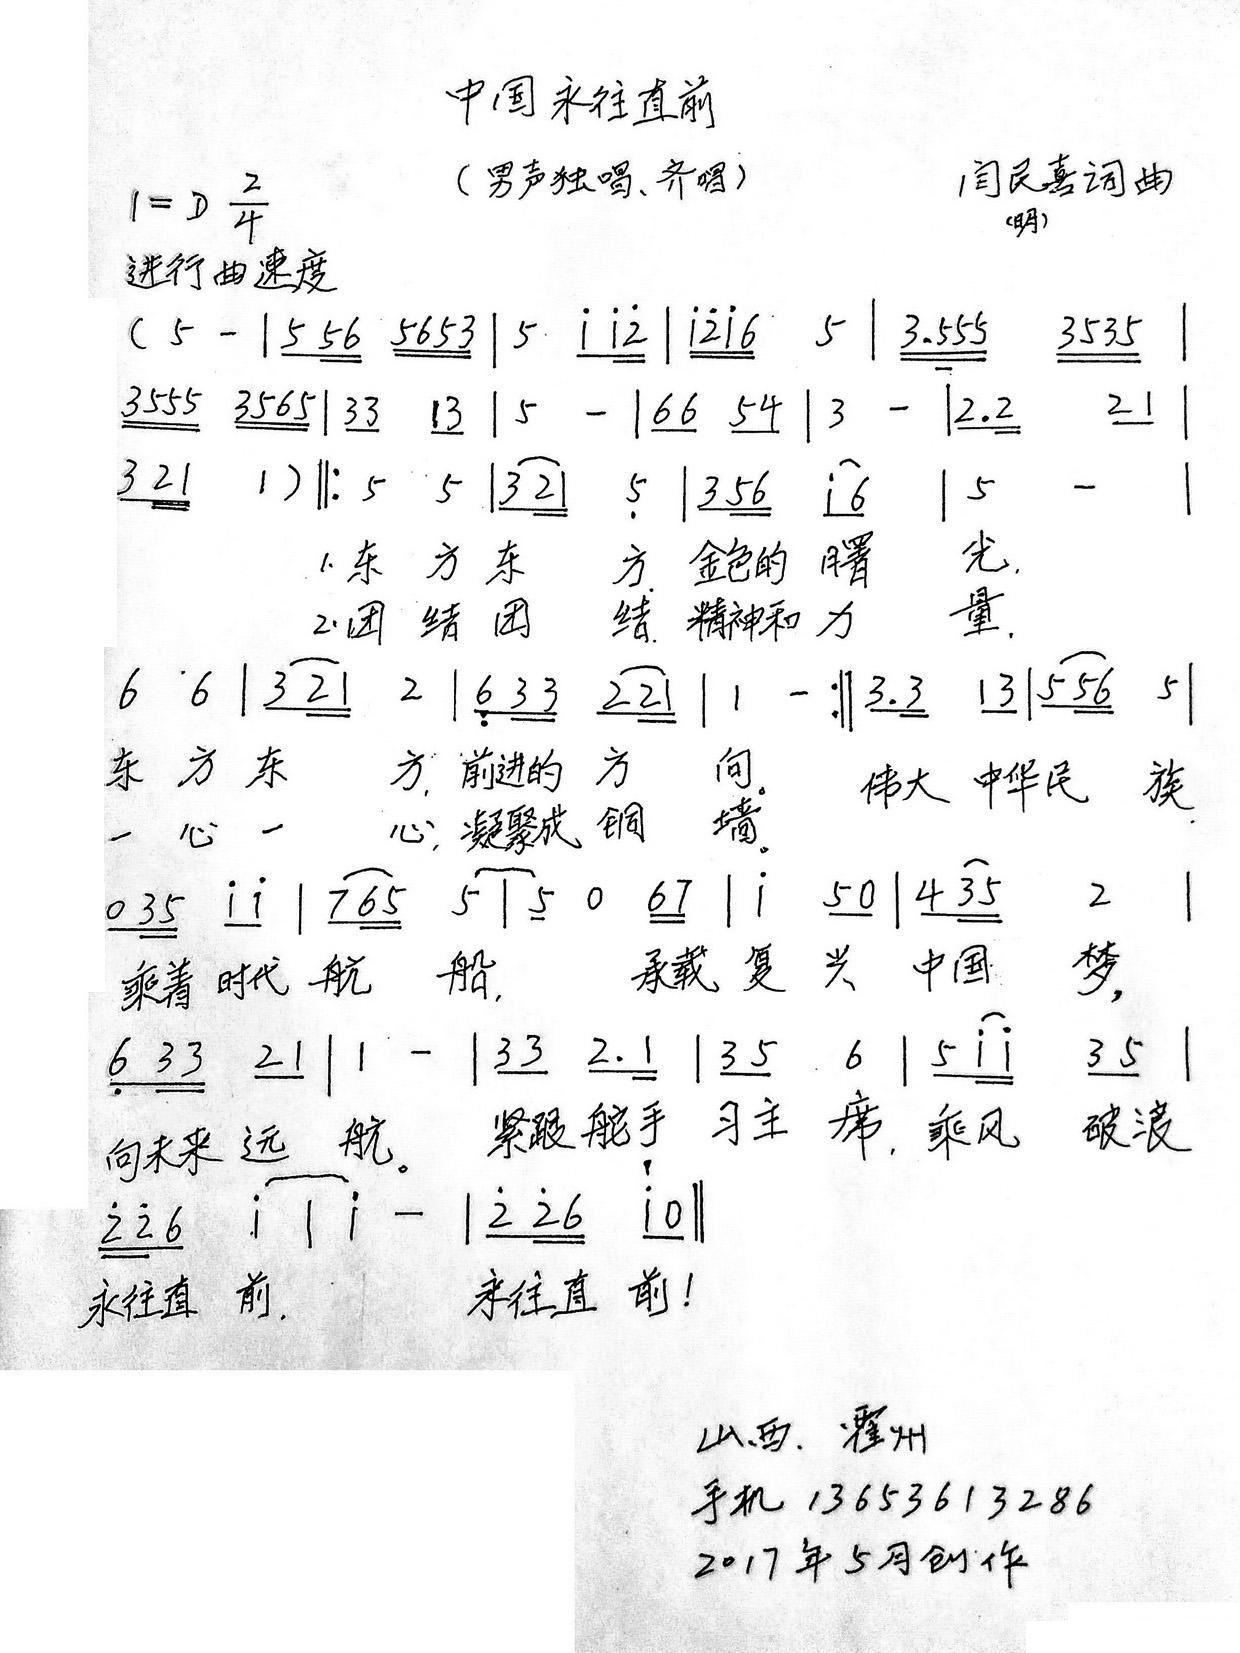 中国永往直前
(男声独唱、齐唱)
闫民喜词曲
(明)
1=D 2/4
进行曲速度
( 5 - | 5 56 5653 | 5 i i2 | i2i6 5 | 3.555 3535 |
3555 3565 | 33 13 | 5 - | 66 54 | 3 - | 2.2 21 |
3 21 1 ) ‖: 5 5 | 3 21 5 | 3 56 i6 | 5 - |
1.东 方 东 方, 金色的 曙 光,
2.团 结 团 结, 精神和 力 量,
6 6 | 3 21 2 | 6 33 2 21 | 1 - :‖ 3.3 13 | 5 56 5 |
东 方 东 方, 前进的 方 向。 伟大 中华民 族,
一 心 一 心, 凝聚成 铜 墙。
0 35 i i | 7 65 5 | 5 0 67 | i 50 | 4 35 2 |
乘着 时代 航 船, 承载 复 兴 中国 梦,
6 33 21 | 1 - | 33 2.1 | 35 6 | 5 i i 35 |
向未来 远 航。 紧跟 舵手 习主 席, 乘风 破浪
2 2 6 i | i - | 2 26 i0 ‖
永往直 前, 永往直 前!
山西. 霍州
手机 13653613286
2017年5月创作